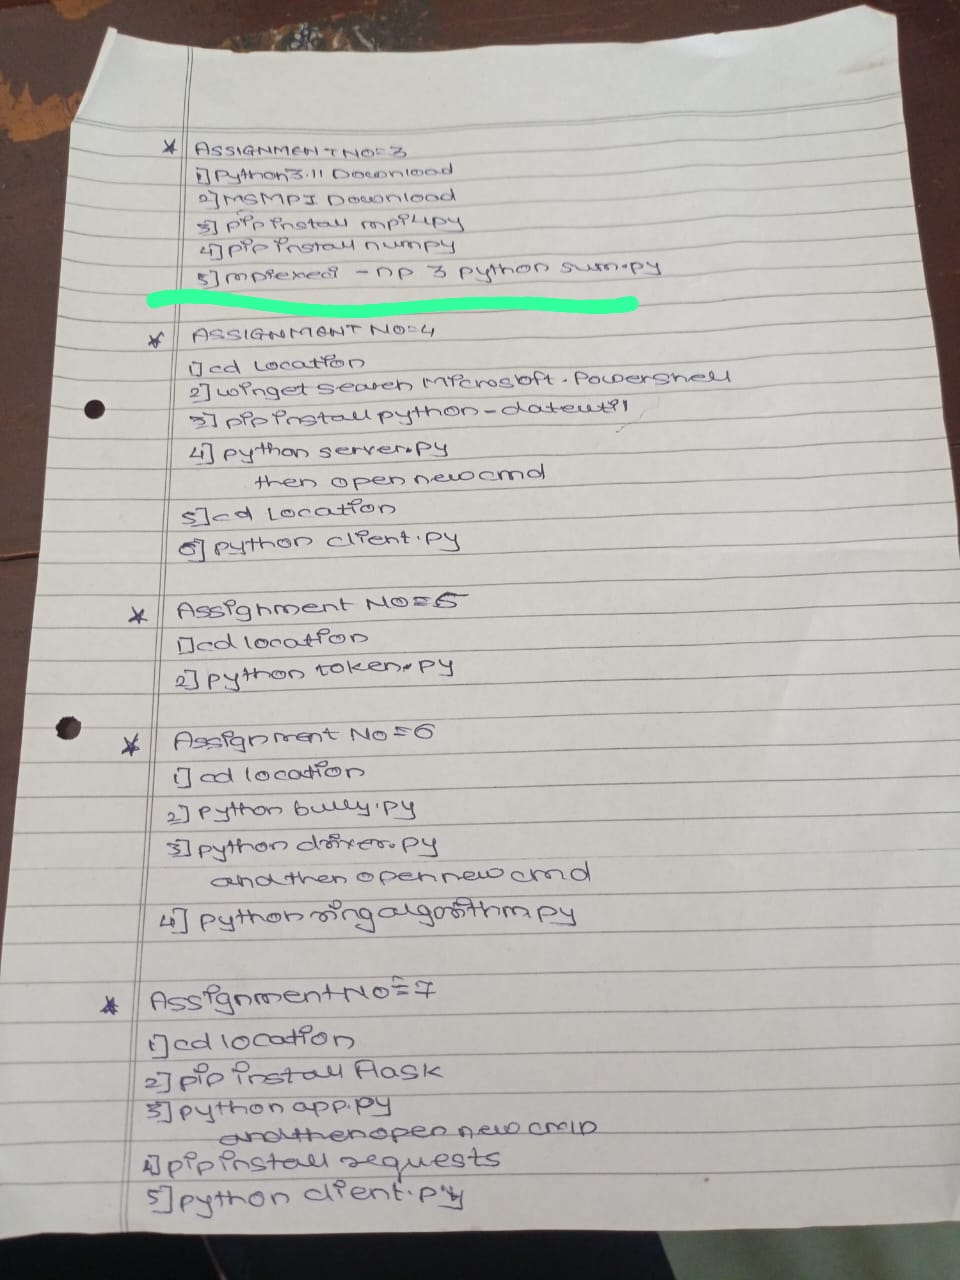 * ASSIGNMENT NO=3
1] Python3.11 Download
2] MSMPI Download
3] pip install mpi4py
4] pip install numpy
5] mpiexec - np 3 python sum.py
* ASSIGNMENT NO=4
1] cd Location
2] winget search Microsoft.Powershell
3] pip install python-dateutil
4] python server.py
then open new cmd
5] cd Location
6] python client.py
* Assignment No=5
1] cd location
2] python token.py
* Assignment No=6
1] cd location
2] python bully.py
3] python driver.py
and then open new cmd
4] python ringalgorithm.py
* Assignment No=7
1] cd location
2] pip install flask
3] python app.py
and then open new cmd
4] pip install requests
5] python client.py